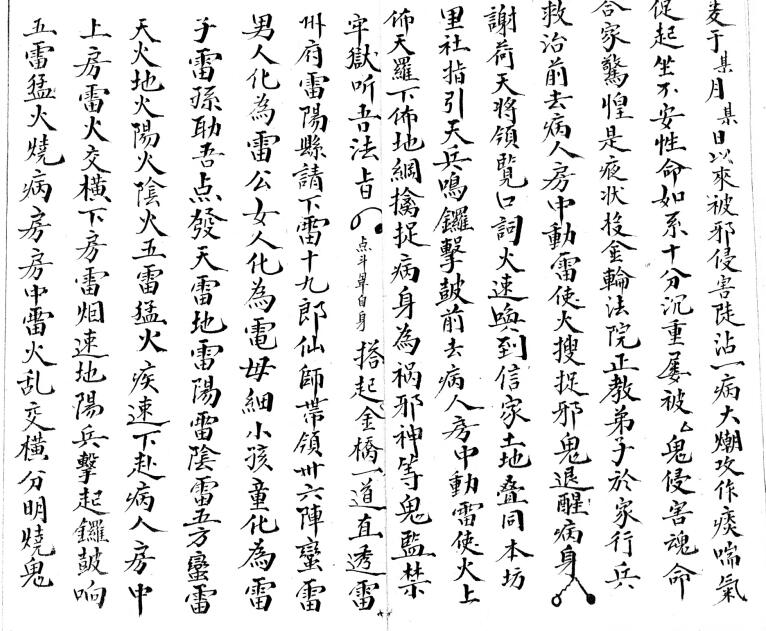 于某月某日以來被邪侵害陡沾一病大潮攻作痰喘氣
促起坐不安性命如系十分沉重屡被厶鬼侵害魂命
合家驚惶是疫状投金輪法院正教弟子於家行兵
救治前去病人房中動雷使火搜捉邪鬼退醒病身
謝荷天將領覧口詞火速喚到信家土地叠同本坊
里社指引天兵鳴鑼擊皷前去病人房中動雷使火上
佈天羅下佈地網擒捉病身為祸邪神等鬼監禁
牢獄听吾法旨 点斗罩自身 搭起金橋一道直透雷
州府雷陽縣請下雷十九郎仙師帶領卅六陣蠻雷
男人化為雷公女人化為電母細小孩童化為雷
子雷孫助吾点發天雷地雷陽雷陰雷五方蠻雷
天火地火陽火陰火五雷猛火疾速下赴病人房中
上房雷火交橫下房雷烟速地陽兵擊起鑼皷响
五雷猛火燒病房房中雷火乱交橫分明燒鬼